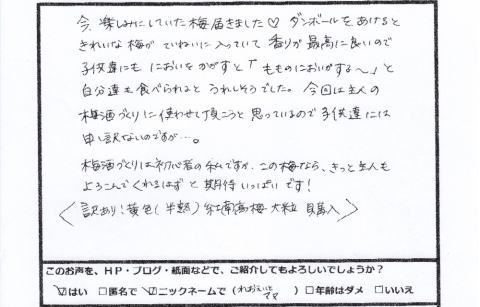 今、楽しみにしていた梅届きました♡ ダンボールをあけると
きれいな梅が ていねいに入っていて 香りが最高に良いので
子供達にも においをかがすと「もものにおいがする〜」と
自分達も食べられると うれしそうでした。今回は主人の
梅酒づくりに使わせて頂こうと 思っているので子供達には
申し訳ないのですが…。
梅酒づくりは初心者の私ですが、この梅なら、きっと主人も
よろこんでくれるはずと 期待いっぱいです!
〈訳あり!黄色(半熟)紅南高梅 大粒 購入〉
このお声を、HP・ブログ・紙面などで、ご紹介してもよろしいでしょうか?
☑はい □匿名で ☑ニックネームで( ママ )□年齢はダメ □いいえ